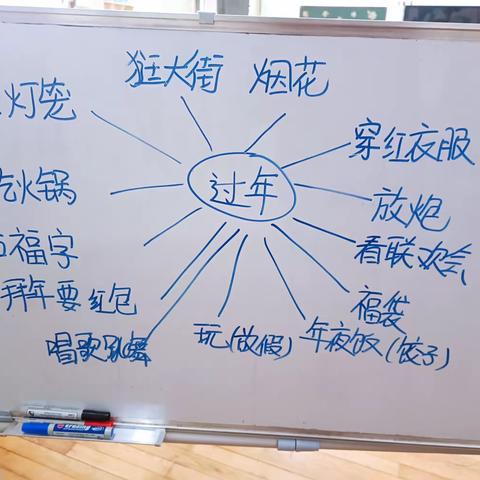 狂大街 烟花
灯笼
穿红衣服
过年
吃火锅
放炮
福字
看联欢会
拜年要红包
福袋
唱歌跳舞
玩(放假)
年夜饭(饺子)